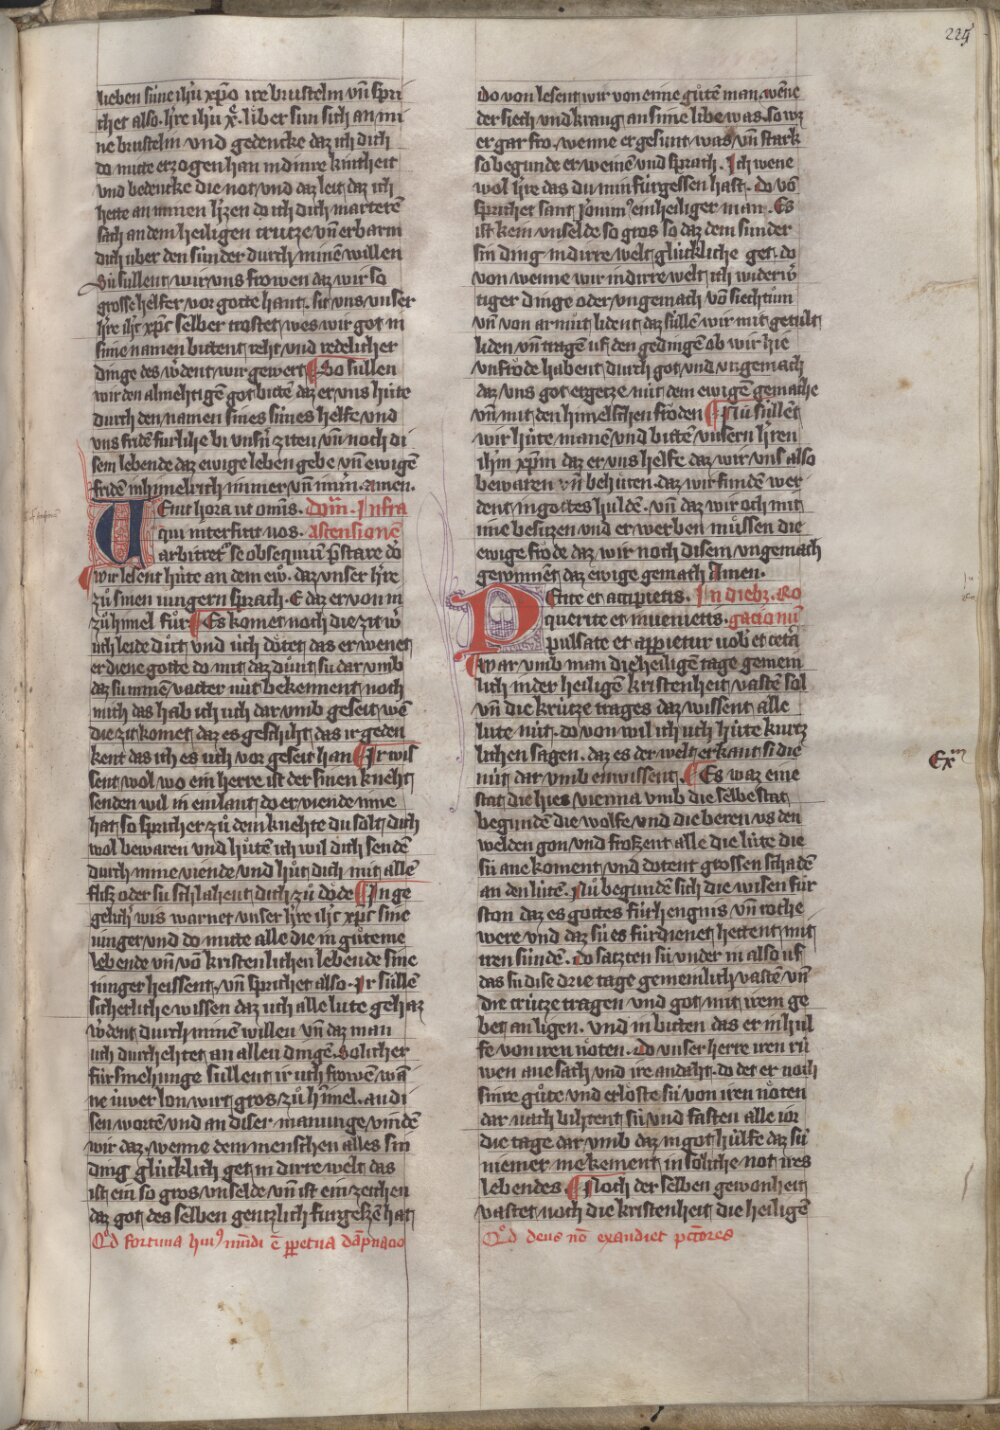 225
lieben súne ihū xp̄o ire brustelin vn̄ spri
chet also. h̄re ihū xp̄e. lieber sun sich an mi
ne brustelin vnd gedencke daz ich dich
do mitte erzogen han in dinre kintheit
vnd bedencke die not vnd daz leit daz ich
hette an minen h̄zen do ich dich marteren̄
sach an dem heiligen crutze vn̄ erbarm
dich über den súnder durch minē willen
Sú sullent wir vns frowen daz wir so
grosse helfer vor gotte hant. sit vns vnser
h̄re ihc xpc selber trostet wes wir got in
sime namen bittent reht vnd redelicher
dinge des w̄dent wir gewert ¶ So sullen
wir den almehtigen got bittē daz er vns húte
durch den namen sines sunes helfe vnd
vns fridē furlihe bi vnsn̄ ziten vn̄ noch di
sem lebende daz ewige leben gebe vn̄ ewigē
fridē in himelrich immer vn̄ mm. amen.
Uenit hora ut omīs. dom̄. Infra
qui interficit uos. ascensionē
arbitret᷒ se obsequiū p̄stare dō
¶ wir lesent húte an dem ew̄. daz vnser h̄re
zů sinen iungern sprach. E daz er von in
zů himel fůr ¶ Es komet noch die zit w̄
úch leide důt vnd úch dôtet das er wenet
er diene gotte do mit daz dünt su dar vmb
daz su minen vatter nút bekennent noch
mich das hab ich úch dar vmb geseit wē
die zit komet daz es geschiht das ir geden
kent das ich es úch vor geseit han ¶ Ir wis
sent wol wo ein herre ist der sinen kneht
senden wil in ein lant do er viende inne
hat so spricher zů dem knehte du solt dich
wol bewaren vnd hůten ich wil dich sendē
durch mine viende vnd hůt dich mit allē
fliß oder su schlahent dich zů dode ¶ In ge
gelich wis warnet vnser h̄re ihc xpc sine
iunger vnd do mitte alle die in gůteme
lebende vn̄ vō kristenlichen lebende sine
iunger heissent vn̄ sprichet also. Ir súllē
sicherliche wissen daz úch alle lute gehaz
w̄dent durch minen willen vn̄ daz man
úch durchehtet an allen dingē. Solicher
fúrsmehunge sullent ir úch frowē wā
ne úwer lon wirt gros zů himel. an di
sen wortē vnd an diser manunge vindē
wir daz wenne dem menschen alles sin
ding glúcklich get in dirre welt das
ist ein so gros vnselde vn̄ ist ein zeichen
daz got des selben gentzlich fúrgessē hat
Qd̄ fortuna hui᷒ mūdi ē ꝑpetua dāpnacio
do von lesent wir von eime gůtē man. wēne
der siech vnd krang an sime libe was. so wz
er gar fro. wenne er gesunt was vn̄ stark
so begunde er weinē vnd sprach. Ich wene
wol h̄re das du min fúrgessen hast. do vō
sprichet sant Ieronim᷒ ein heiliger man. Es
ist kein vnselde so gros so daz dem súnder
sin ding in dirre welt glúckliche get. do
von wenne wir in dirre welt ich wider w̄
tiger dinge oder vngemach vō siechtům
vn̄ von armůt lident daz sullē wir mit getult
liden vn̄ tragē uf den gedingē ob wir hie
vnfrôde habent durch got vnd vngemach
daz vns got ergetze mit dem ewigē gemache
vn̄ mit den himelschen frôden ¶ Nu súllēt
wir húte manē vnd bittē vnsern h̄ren
ihm xpm daz er vns helfe daz wir vns also
bewaren vn̄ behúten. daz wir fundē wer
dent in gottes huldē. vn̄ daz wir och mit
ime besitzen vnd erwerben mussen die
ewige frôde daz wir noch disem vngemach
gewinnēt daz ewige gemach Amen.
Petite et accipietis. In diebz. Ro
querite et inuenietis. gacionū
pulsate et appietur uob et cetā
¶ war vmb man die heiligē tage gemein
lich in der heiligē kristenheit vastē sol
vn̄ die krútze trages daz wissent alle
lute nút. do von wil ich úch húte kurtz
lichen sagen. daz es der welt erkant si die
nút dar vmb enwissent. ¶ Es waz eine
stat die hies vienna vmb die selbe stat
begundē die wolfe vnd die beren vs den
welden gon vnd frossent alle die lúte die
sú ane koment vnd dotent grossen schadē
an den lútē. Nů begundē sich die wisen fúr
ston daz es gottes fúrhengnis vn̄ roche
were vnd daz sú es fúrdienet hettent mit
iren súndē. do satzten sú vnder in also uf
das sú dise drie tage gemeinlich vastē vn̄
die crútze tragen vnd got mit irem ge
bet an ligen. vnd in bitten das er in hul
fe von iren nôten. do vnser herre iren rú
wen ane sach vnd ire andaht. do det er noch
sinre gůte vnd erloste sú von iren nôten
dar nach búhtent sú vnd fasten alle ior
die tage dar vmb daz in got húlfe daz sú
niemer me kement in soliche not ires
lebendes ¶ Noch der selben gewonheit
vastet noch die kristenheit die heiligē
Qd̄ deus nō exaudiet pctores
Exm̄